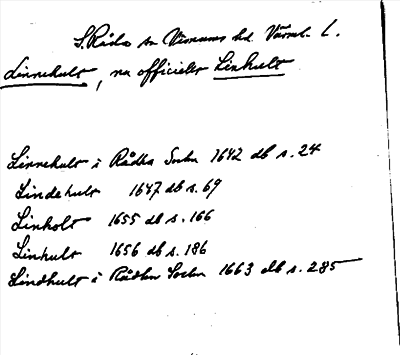 S. Råda sn Visnums hd. Värml. L.
Linnehult, nu officiellt Linhult
Linnehult i Rådha Sochn 1642 db s. 24
Lindehult 1647 db s. 69
Linholt 1655 db s. 166
Linhult 1656 db s. 186
Lindhult i Rådhn Sochn 1663 db s. 285